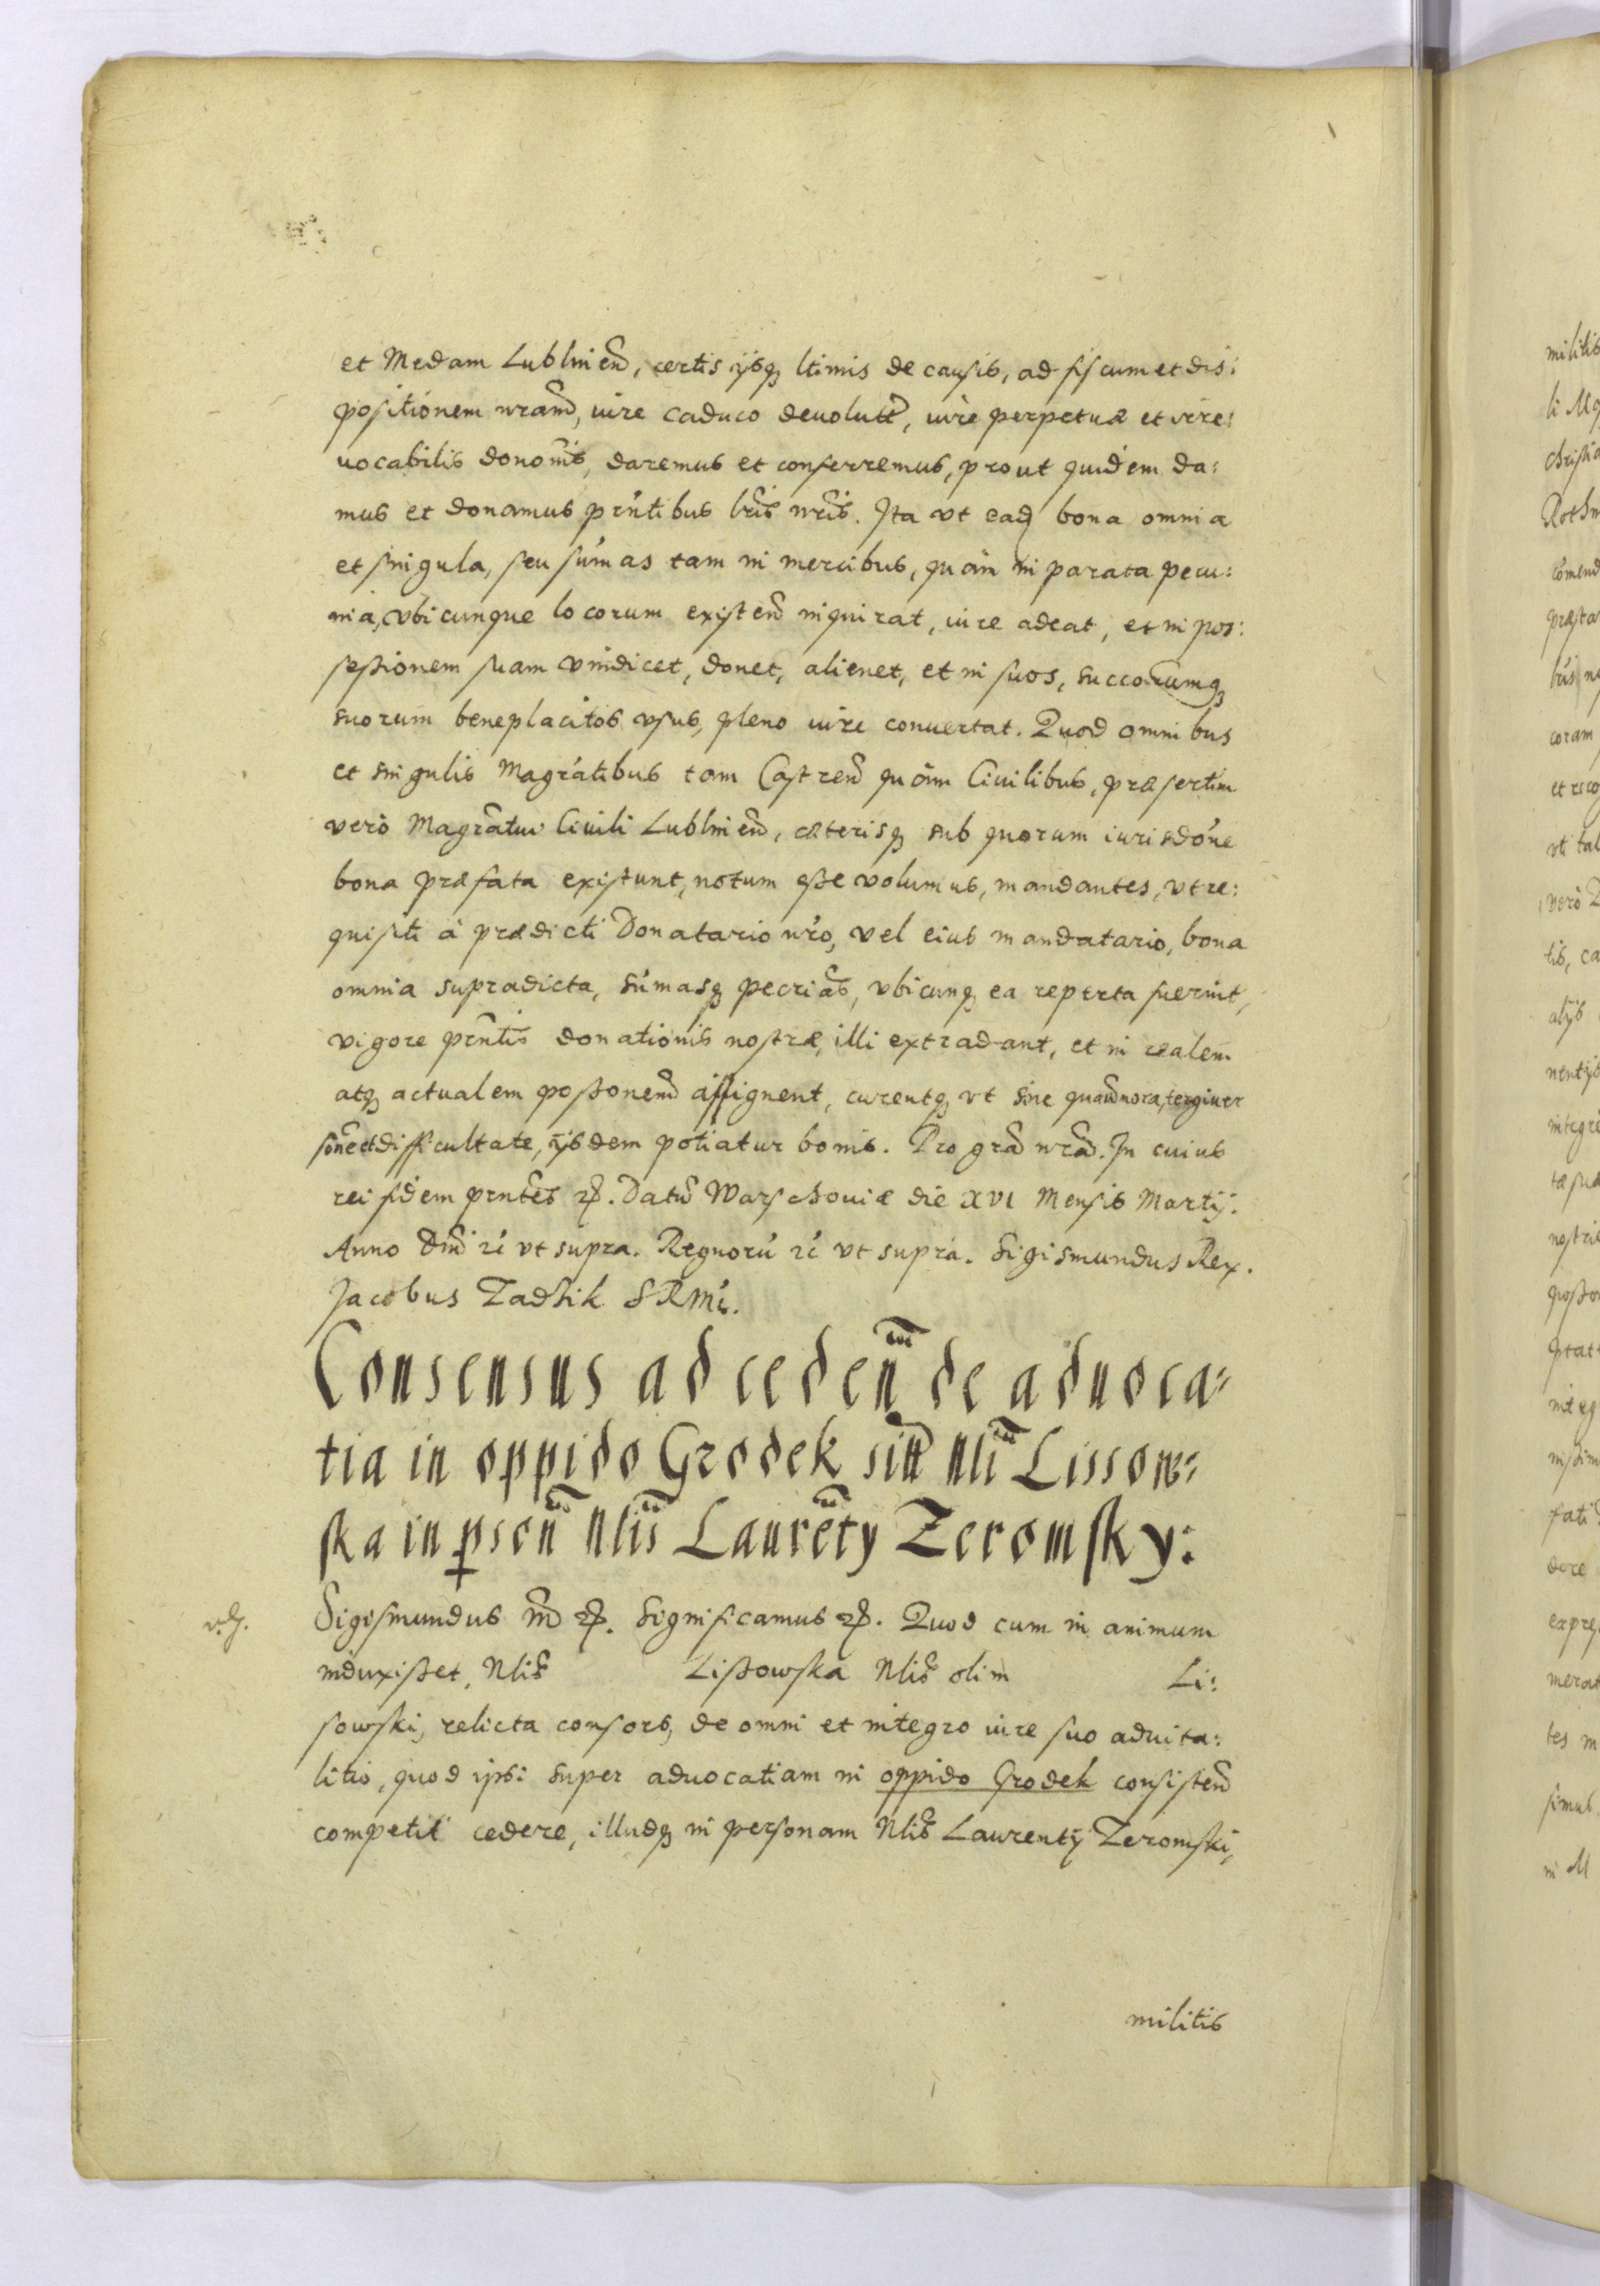 et Medam Lublinen, certis ijsq ltimis de causis, ad fiscum et dis:
positionem nram, iure caduco deuolutt, iure perpetuæ et irre:
uocabilis dononis, daremus et conferremus, prout quidem da:
mus et donamus pntibus lris nris. Ita vt ead bona omnia
et singula, seu sumas tam in mercibus, quàm in parata pecu:
nia, vbicunque locorum existen inquirat, iure adeat, et in pos:
sessionem suam vindicet, donet, alienet, et in suos, succorumq
suorum beneplacitos vsus, pleno iure conuertat. Quod omnibus
et singulis Magratibus tam Castren quàm Ciuilibus, præsertim
verò Magratui Ciuili Lublinen, cæterisq sub quorum iurisdone
bona præfata existunt, notum esse volumus, mandantes, vt re:
quisiti à prædicti Donatario nro, vel eius mandatario, bona
omnia supradicta, sumasq pecrias, vbicunq ea reperta fuerint,
vigore pntis donationis nostræ, illi extradant, et in realem
atq actualem possonem assignent, curentq vt sine quauis mora, tergiuer
sone et difficultate, ijsdem potiatur bonis. Pro gra nra. In cuius
rei fidem pntes etc. Datu Warschouiæ die XVI Mensis Martij.
Anno Dni etc vt supra. Regnoru etc vt supra. Sigismundus Rex.
Jacobus Zadzik SRMtis.
Consensus ad ceden de aduoca:
tia in oppido Grodek sitt Nli Lissow:
ska in psonn Nlis Laurety Zeromsky:
Sigismundus etc. Significamus etc. Quod cum in animum
induxisset, Nlis Lissowska Nlis olim Li:
sowski, relicta consors, de omni et integro iure suo aduita:
litio, quod ipsi super aduocatiam in oppido Grodek consisten
competit cedere, illudq in personam Nlis Laurentij Zeromski,
militis